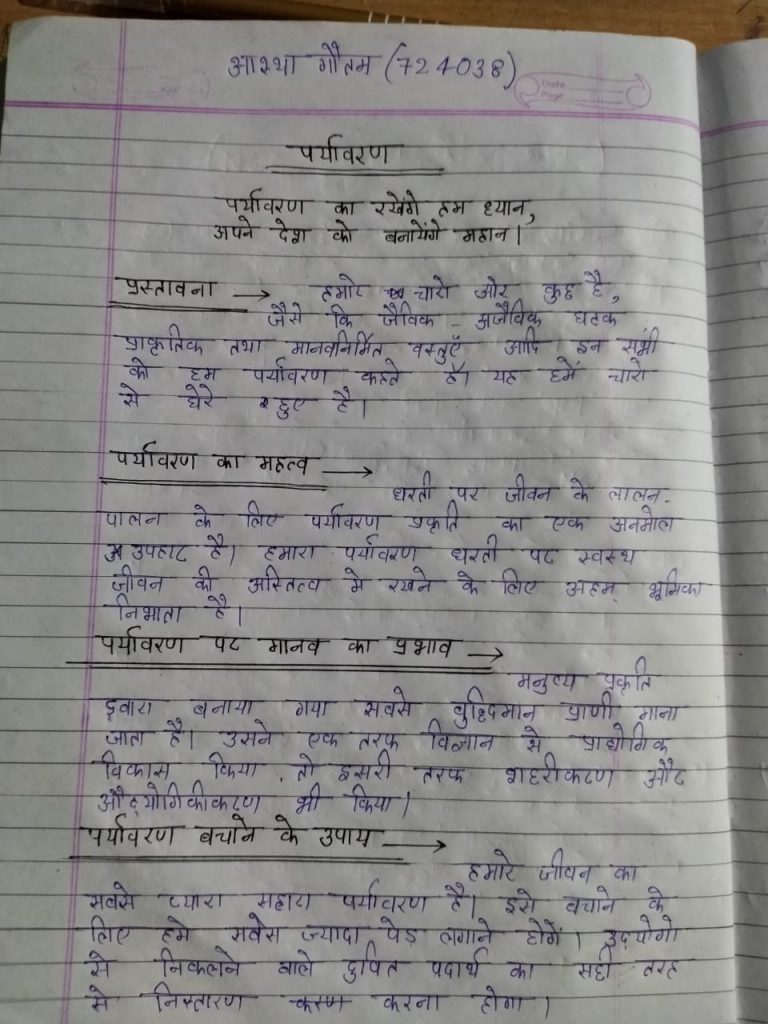 आस्था गौतम (724038)
Date
Page
पर्यावरण
पर्यावरण का रखेंगे हम ध्यान,
अपने देश को बनायेंगे महान।
प्रस्तावना → हमारे चारो ओर कुछ है,
जैसे कि जैविक - अजैविक घटक
प्राकृतिक तथा मानवनिर्मित वस्तुएँ आदि इन सभी
को हम पर्यावरण कहते है। यह हमें चारो
से घेरे हुए है।
पर्यावरण का महत्व →
धरती पर जीवन के लालन-
पालन के लिए पर्यावरण प्रकृति का एक अनमोल
उपहार है। हमारा पर्यावरण धरती पर स्वस्थ
जीवन की अस्तित्व मे रखने के लिए अहम भूमिका
निभाता है।
पर्यावरण पर मानव का प्रभाव →
मनुष्य प्रकृति
द्वारा बनाया गया सबसे बुद्धिमान प्राणी माना
जाता है। उसने एक तरफ विज्ञान से प्राद्योगिक
विकास किया, तो दूसरी तरफ शहरीकरण और
औद्योगिकीकरण भी किया।
पर्यावरण बचाने के उपाय →
हमारे जीवन का
सबसे प्यारा सहारा पर्यावरण है। इसे बचाने के
लिए हमे सबसे ज्यादा पेड़ लगाने होगें। उद्योगो
से निकलने वाले दुषित पदार्थ का सही तरह
से निस्तारण करना होगा।